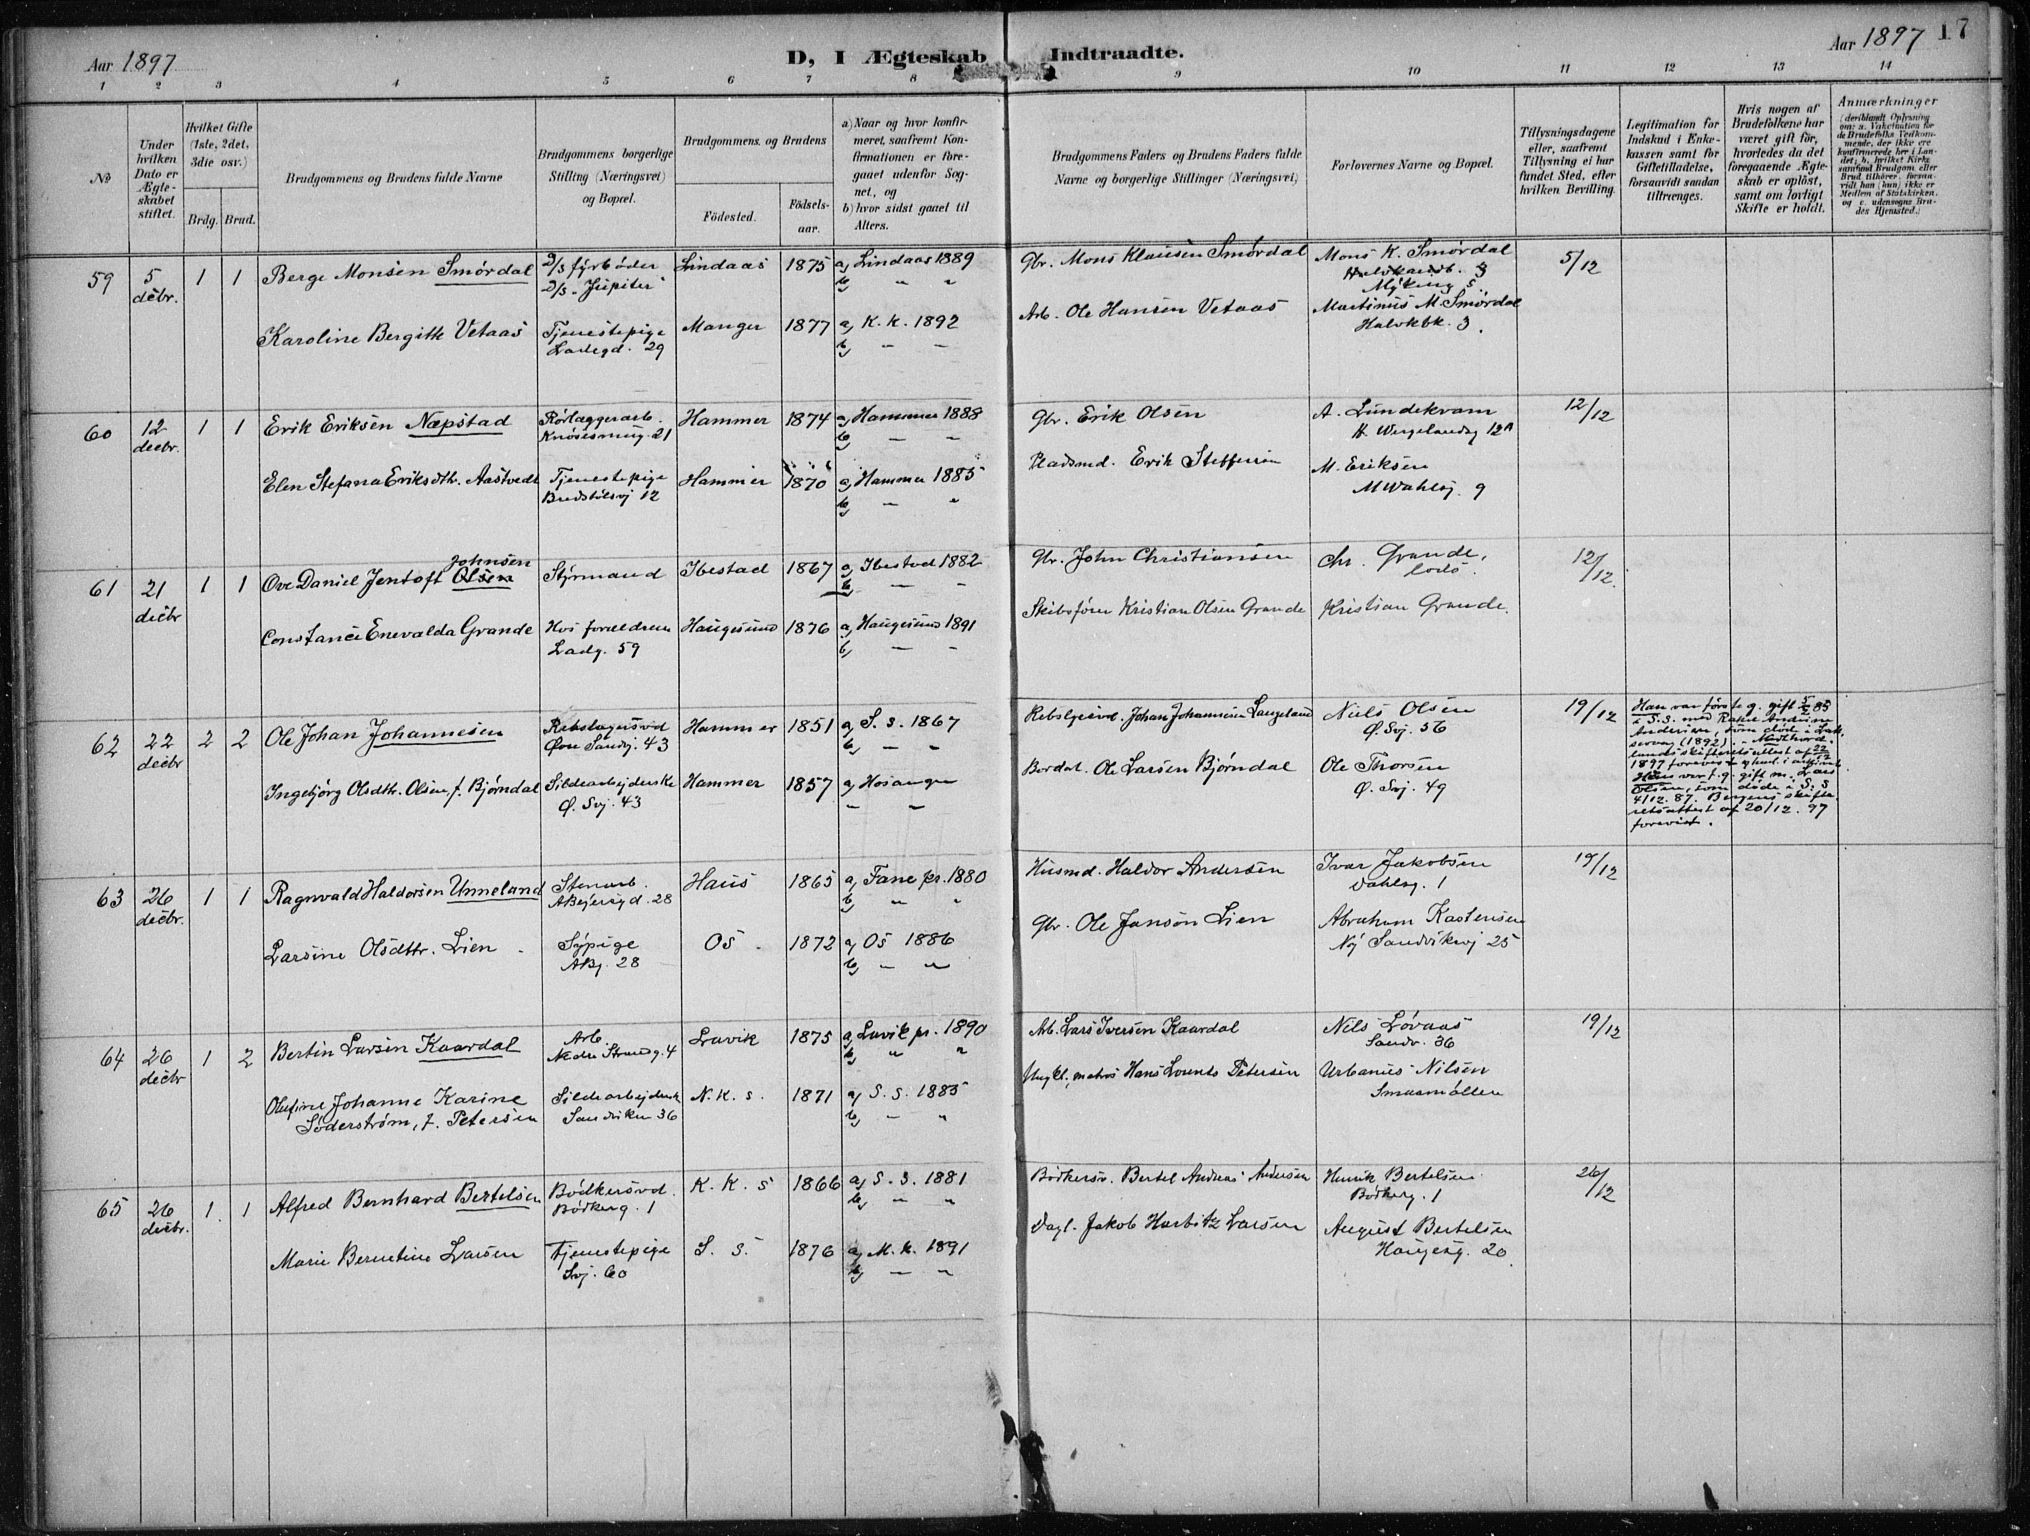 Aar 1897
D, I Ægteskab Indtraadte.
Aar 1897 17
1 2 3 4 5 6 7 8 9 10 11 12 13 14
No
Under hvilken Dato er Ægteskabet stiftet.
Hvilket Gifte (1ste, 2det, 3die osv.)
Brdg. Brud.
Brudgommens og Brudens fulde Navne
Brudgommens borgerlige Stilling (Næringsvei) og Bopæl.
Brudgommens og Brudens
Födested.
Födselsaar.
a) Naar og hvor konfirmeret, saafremt Konfirmationen er foregaaet udenfor Sognet, og
b) hvor sidst gaaet til Alters.
Brudgommens Faders og Brudens Faders fulde Navne og borgerlige Stillinger (Næringsvei)
Forlovernes Navne og Bopæl.
Tillysningsdagene eller, saafremt Tillysning ei har fundet Sted, efter hvilken Bevilling.
Legitimation for Indskud i Enkekassen samt for Giftetilladelse, forsaavidt saadan tiltrænges.
Hvis nogen af Brudefolkene har været gift för, hvorledes da det foregaaende Ægteskab er oplöst, samt om lovligt Skifte er holdt.
Anmærkninger (deriblandt Oplysning om: a. Vakcination for de Brudefolks Vedkommende, der ikke ere konfirmerede her i Landet; b. hvilket Kirkesamfund Brudgom eller Brud tilhörer, forsaavidt han (hun) ikke er Medlem af Statskirken, og c. udensogns Brudes Hjemsted.)
59 5 decbr. 1 1 Berge Monsen Smørdal D/s fyrbøder D/s. "Jupiter" Lindaas 1875 a) Lindaas 1889 b) " "
Gbr. Mons Klausen Smørdal Mons K. Smørdal 5/12
Karoline Bergitte Vetaas Tjenestepige Ladegd. 29 Manger 1877 a) K. k. 1892 b) " "
Arb. Ole Hansen Vetaas Martinus M. Smørdal Halvkbk. 3.
60 12 decbr. 1 1 Erik Eriksen Næpstad Rørlæggerarb. Knøsesmug. 21 Hammer 1874 a) Hammer 1888 b) — "
Gbr. Erik Olsen A. Lundekvam H. Wergelandsg 12A 12/12
Elen Stefana Eriksdtr. Aastvedt Tjenestepige 12 Hammer 1870 a) Hammer 1885 b) — "
Pladsmd. Erik Steffensen M. Eriksen M Wahlsg. 9
61 21 decbr 1 1 Ove Daniel Jentoft Olsen Johnsen Styrmand Ibestad 1867 a) Ibestad 1882 b) — "
Gbr. John Christiansen Chr. Grande, lods. 12/12.
Constance Enevalda Grande Hos forældrene Ladg. 59 Haugesund 1876 a) Haugesund 1891 b) — "
Skibsfører Kristian Olsen Grande Kristian Grande.
62 22 decbr 2 2 Ole Johan Johannesen Rebslagersvd Øvre Sandvj. 43 Hammer 1851 a) S. s. 1867 b) — "
Rebslgersvd. Johan Johannesen Langeland Niels Olsen Ø. Svj. 56 19/12
Han var første g. gift 5/2 85 i S. s. med Rakel Andrine Andersen, som døde i (1892). Nordhordlands skifteretsattest af 22/ 1897 forevist
Hun var f. g. gift m. Lars Olsen, som døde i S. S 4/12. 87. Bergens skifteretsattest af 20/12. 97 forevist.
Ingebjørg Olsdtr. Olsen, f. Bjørndal Sildearbejderske Ø. Svj. 43 Hammer 1857 a) Hosanger — "
Ole Larsen Bjørndal Ole Thorsen Ø. Svj. 49
63 26 decbr. 1 1 Ragnvald Haldorsen Unneland Stenarb. 28 Haus 1865 a) Fane pr. 1880 b) " "
Husmd. Haldor Andersen Ivar Jakobsen Dahlsg. 1 19/12
Larsine Olsdttr. Lien Sypige 28 Os 1872 a) Os 1886 b) — "
Gbr. Ole Janson Lien Abraham Kastensen Ny Sandviksvj 25
64 26 decbr 1 2 Bertin Larsen Kaardal Arb. Nedre Strandg. 4 Lavik 1875 a) Lavik pr. 1890 b) " "
Arb. Lars Iversen Kaardal Nils Løvaas Sandv. 36 19/12
Olufine Johanne Karine Söderstrøm, f. Petersen Sildearbejdersk Sandviken 36 N. K. s. 1871 a) S. s. 1885 b) — "
Ungkl. matros Hans Lorents Petersen Urbanus Nilsen Smaamøllen
65 26 decbr. 1. 1 Alfred Bernhard Bertelsen Bødkersvd. Bødkerg. 1 K. K. s 1866 a) S. s. 1881 b) — "
Bødkersv. Bertel Andreas Andersen Henrik Bertelsen Bødkerg. 1 26/12
Marie Berentine Larsen Tjenestepige Svj. 60 S. s. 1876 a) M. k. 1891 b) — "
Dagl. Jakob Harbitz Larsen August Bertelsen Haugesg. 20